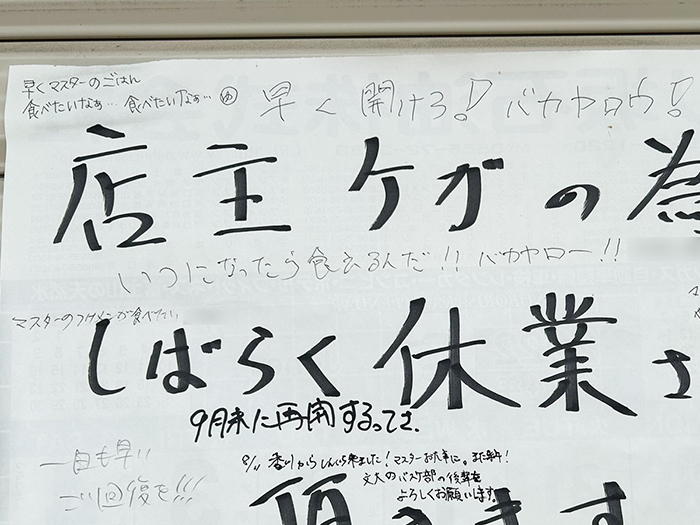 早くマスターのごはん
食べたいなぁ… 食べたいなぁ… ゆ
早く開けろ! バカヤロウ!
店主ケガの為
いつになったら食えるんだ!! バカヤロー!!
マスターのつけメンが食べたい
しばらく休業さ
9月末に再開するってさ.
一日も早い
ご回復を!!!
8/11 香川から
来ました! マスターお大事に。また来ます!
文大のバスケ部の後輩を
よろしくお願いします。
頂きます